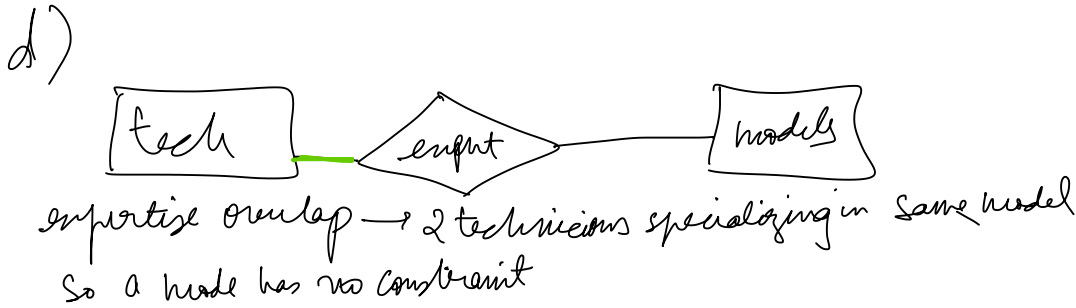 d)
tech expert models
expertise overlap → 2 technicians specializing in same model
so a mode has no constraint